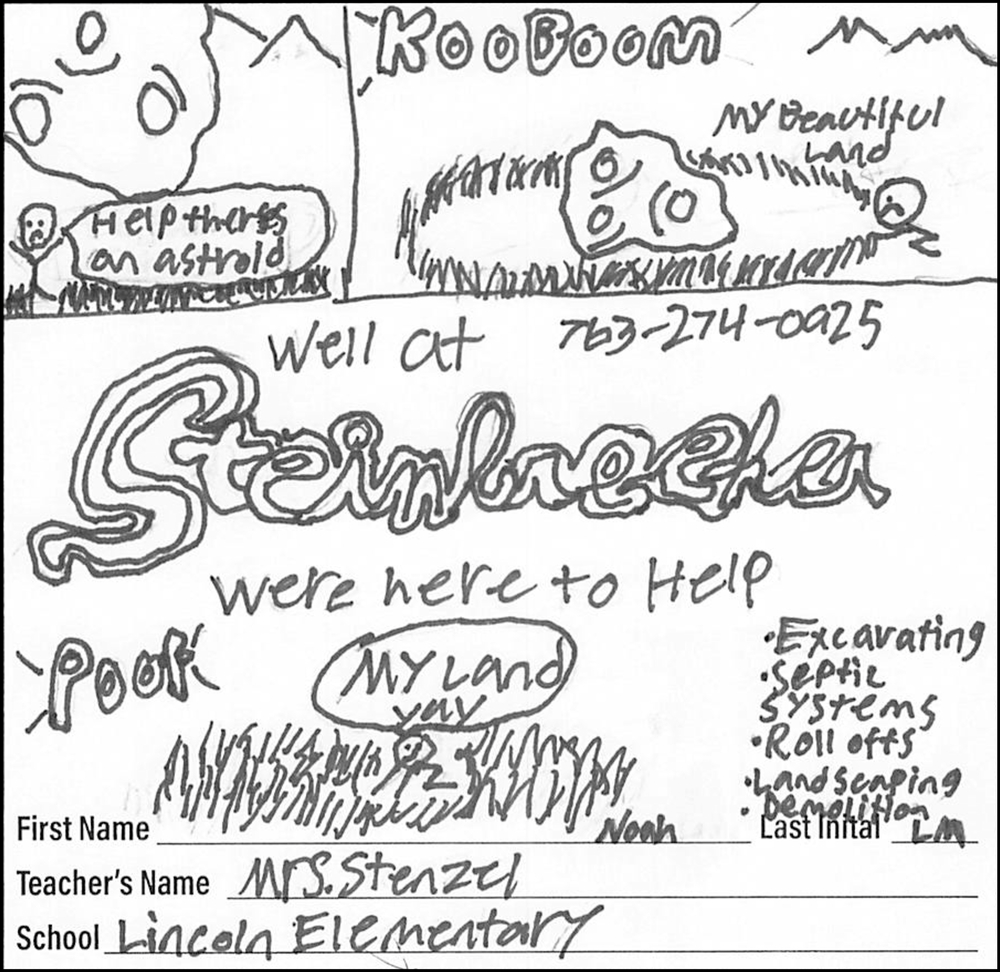 Help theres
an astroid
KOOBOOM
MY Beautiful
Land
Well at
763-274-0925
Steinbrecher
were here to Help
Poof
MY Land
yay
•Excavating
•Septic
Systems
•Roll offs
•Landscaping
•Demolition
First Name Noah
Last Inital LM
Teacher's Name Mrs. Stenzel
School Lincoln Elementary